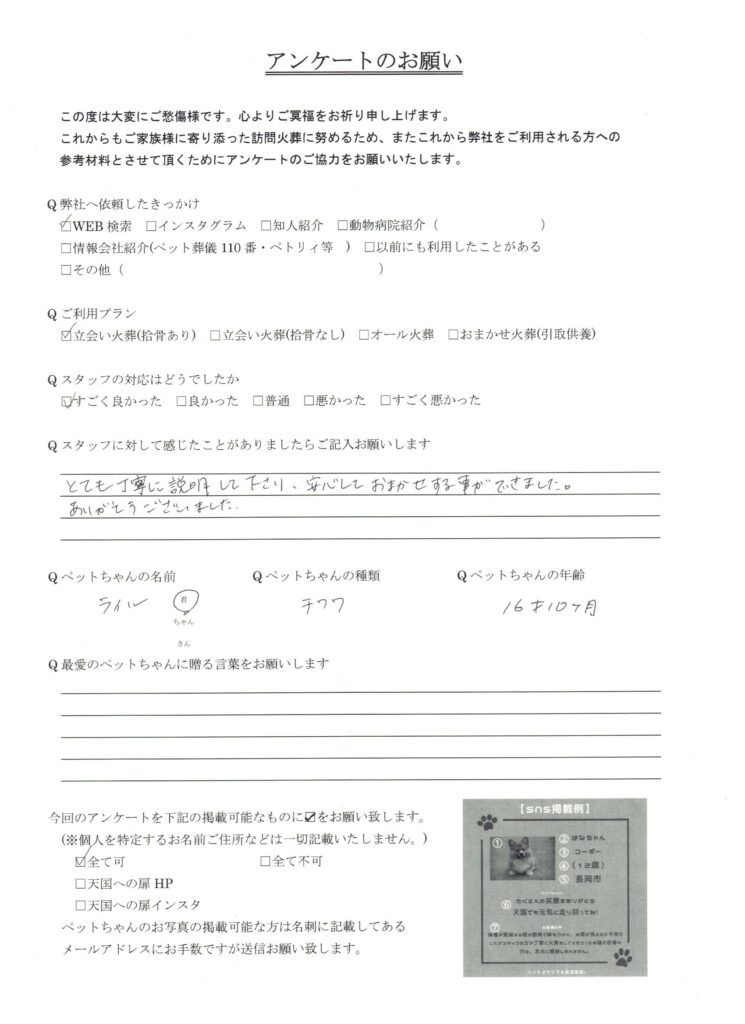 アンケートのお願い
この度は大変にご愁傷様です。心よりご冥福をお祈り申し上げます。
これからもご家族様に寄り添った訪問火葬に努めるため、またこれから弊社をご利用される方への
参考材料とさせて頂くためにアンケートのご協力をお願いいたします。
Q 弊社へ依頼したきっかけ
☑WEB 検索 □インスタグラム □知人紹介 □動物病院紹介（ ）
□情報会社紹介(ペット葬儀 110 番・ペトリィ等 ) □以前にも利用したことがある
□その他（ ）
Q ご利用プラン
☑立会い火葬(拾骨あり) □立会い火葬(拾骨なし) □オール火葬 □おまかせ火葬(引取供養)
Q スタッフの対応はどうでしたか
☑すごく良かった □良かった □普通 □悪かった □すごく悪かった
Q スタッフに対して感じたことがありましたらご記入お願いします
とても丁寧に説明して下さり、安心しておまかせする事ができました。
ありがとうございました.
Q ペットちゃんの名前 Q ペットちゃんの種類 Q ペットちゃんの年齢
ライル 君 チワワ 16才10ヶ月
ちゃん
さん
Q 最愛のペットちゃんに贈る言葉をお願いします
今回のアンケートを下記の掲載可能なものに☑をお願い致します。
(※個人を特定するお名前ご住所などは一切記載いたしません。)
☑全て可 □全て不可
□天国への扉 HP
□天国への扉インスタ
ペットちゃんのお写真の掲載可能な方は名刺に記載してある
メールアドレスにお手数ですが送信お願い致します。
【sns掲載例】
① ② はなちゃん
③ コーギー
④ (12歳)
⑤ 長岡市
⑥ たくさんの笑顔をありがとう
天国でも元気に走り回ってね!
⑦